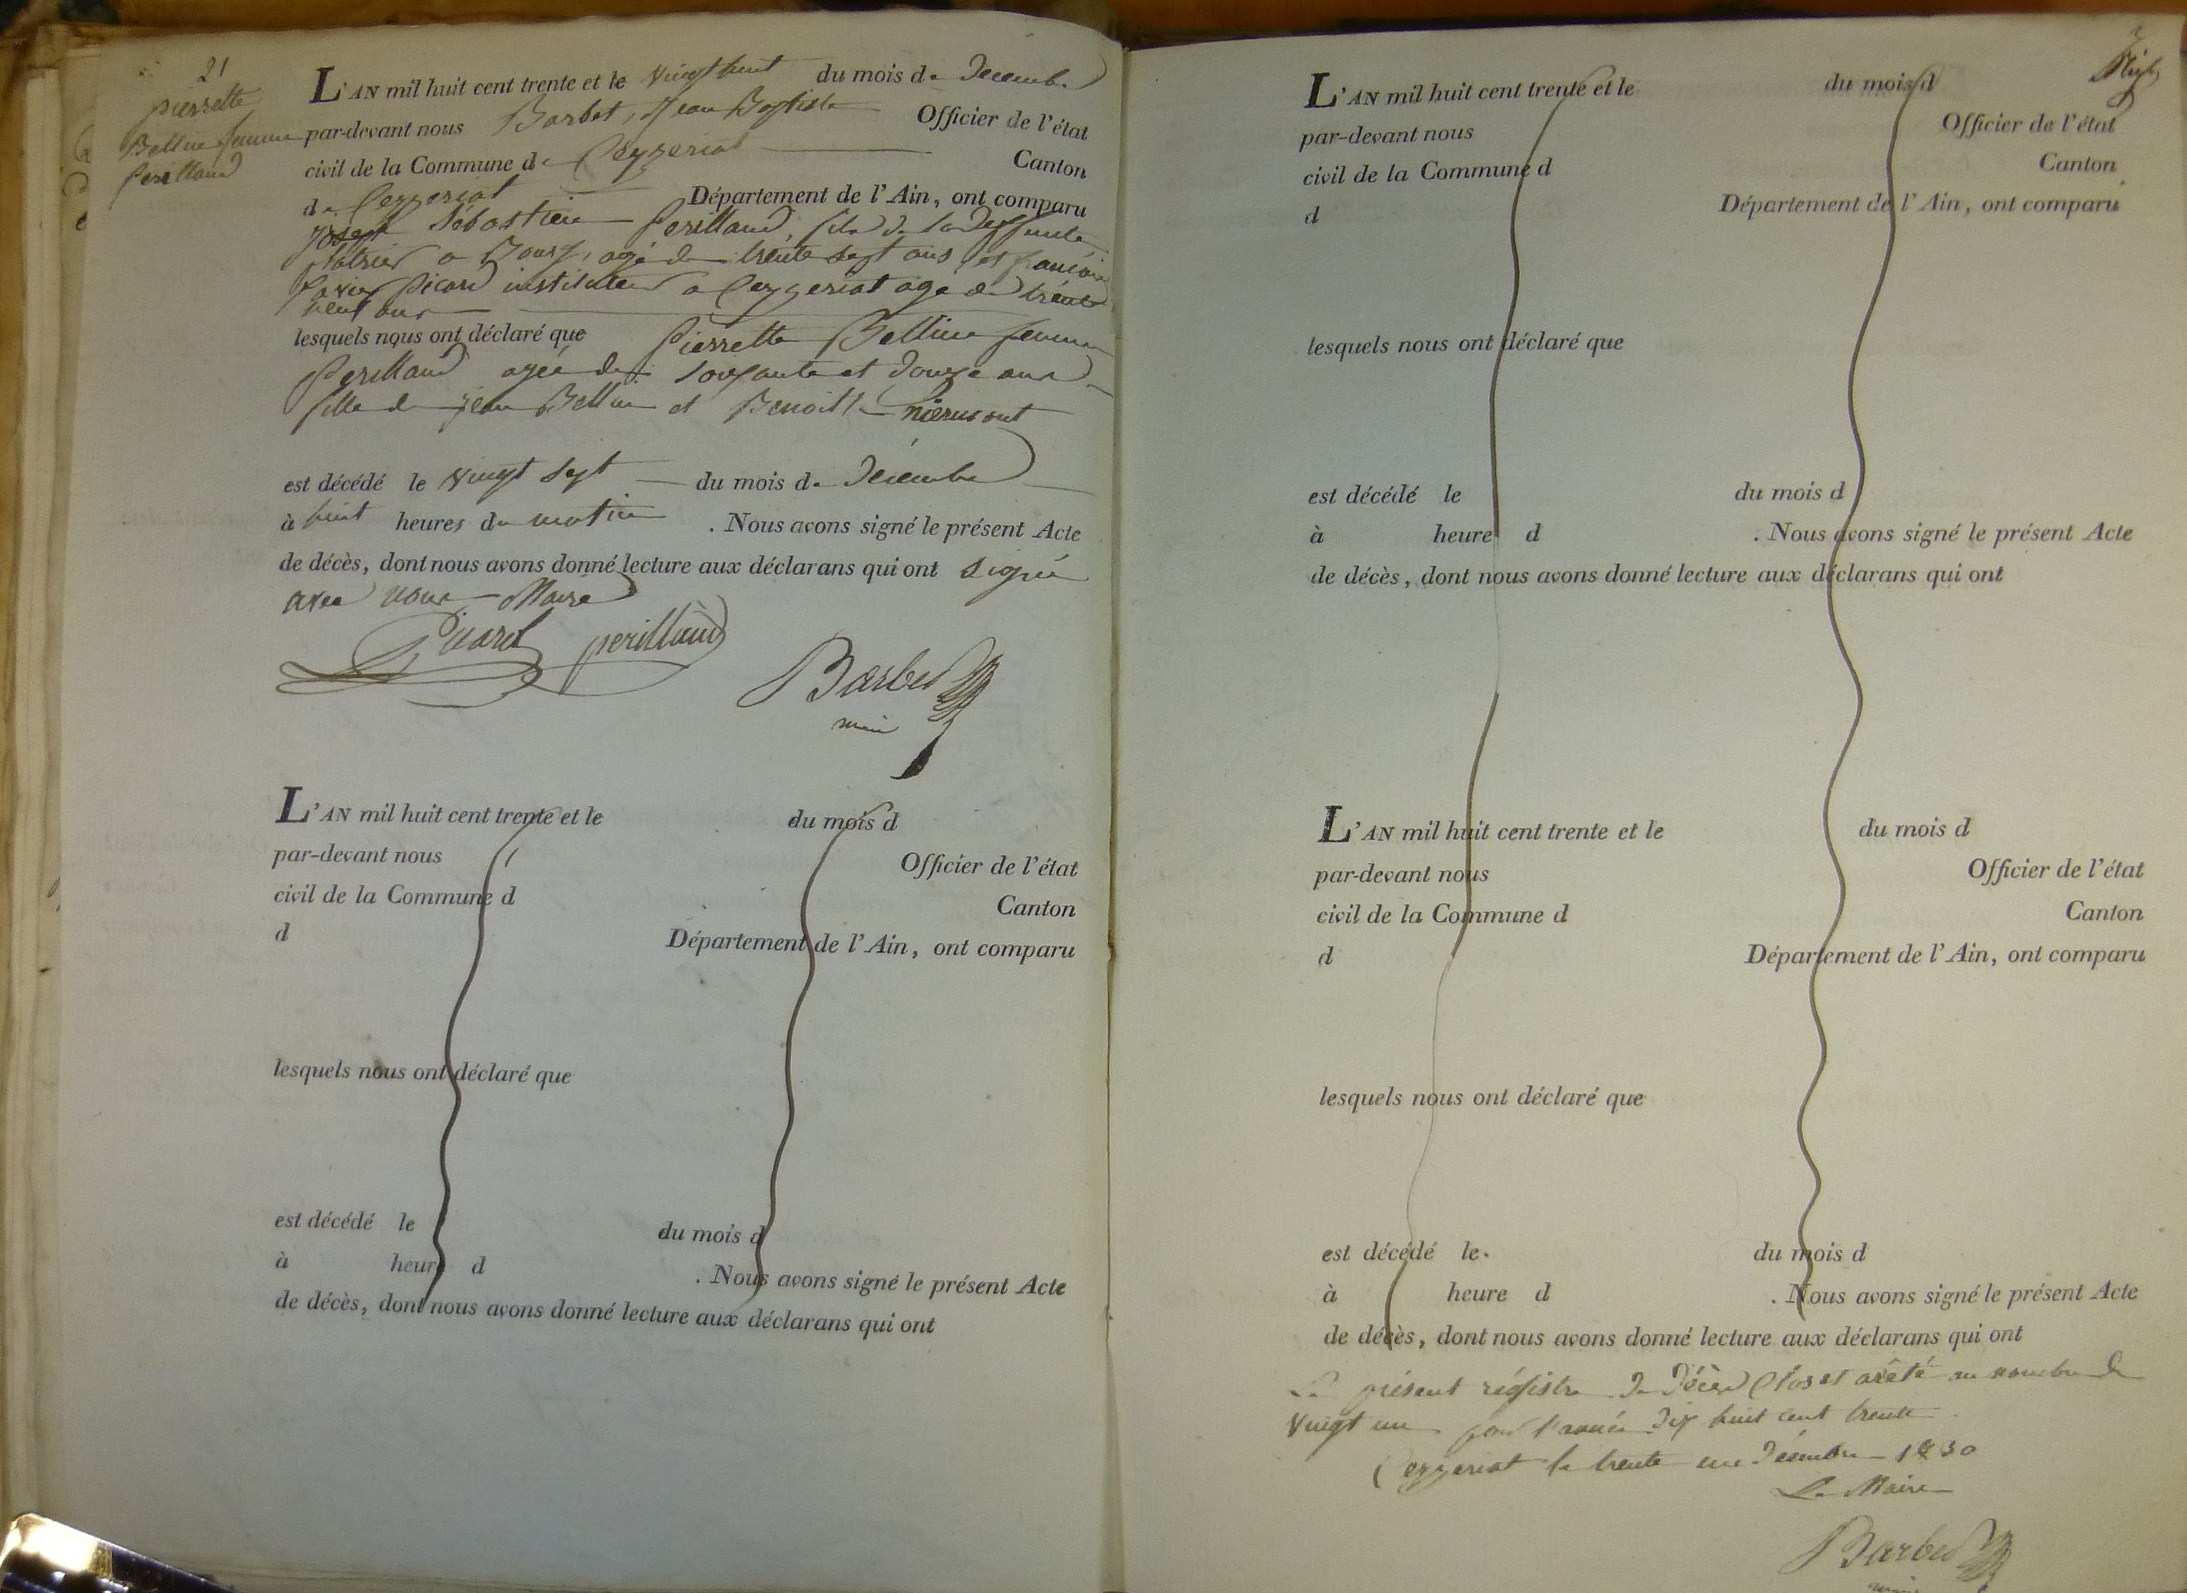 21
pierrette
Belline femme
Perillaud
L'AN mil huit cent trente et le vingt huit du mois de Décembre
par-devant nous Barbet, Jean Baptiste Officier de l'état
civil de la Commune de Ceyzeriat Canton
de Ceyzeriat Département de l'Ain, ont comparu
Joseph Sébastien Perillaud, fils de la deffunte
platrier a Bourg, agé de trente sept ans et françois
xavier Picard instituteur a Ceyzeriat agé de trente
neuf ans
lesquels nous ont déclaré que Pierrette Belline femme
Perillaud agée de soixante et douze ans
fille de Jean Bellin et Benoitte
est décédé le vingt sept du mois de Décembre
à huit heures du matin . Nous avons signé le présent Acte
de décès, dont nous avons donné lecture aux déclarans qui ont signé
avec nous Maire
Picard perillaud
Barbet
maire
L'AN mil huit cent trente et le du mois d
par-devant nous Officier de l'état
civil de la Commune d Canton
d Département de l'Ain, ont comparu
lesquels nous ont déclaré que
est décédé le du mois d
à heure d . Nous avons signé le présent Acte
de décès, dont nous avons donné lecture aux déclarans qui ont
L'AN mil huit cent trente et le du mois d
par-devant nous Officier de l'état
civil de la Commune d Canton
d Département de l'Ain, ont comparu
lesquels nous ont déclaré que
est décédé le du mois d
à heure d . Nous avons signé le présent Acte
de décès, dont nous avons donné lecture aux déclarans qui ont
L'AN mil huit cent trente et le du mois d
par-devant nous Officier de l'état
civil de la Commune d Canton
d Département de l'Ain, ont comparu
lesquels nous ont déclaré que
est décédé le. du mois d
à heure d . Nous avons signé le présent Acte
de décès, dont nous avons donné lecture aux déclarans qui ont
Le présent régistre de Décès Clos et arêté au nombre de
vingt un pour l'année dix huit cent trente
Ceyzeriat le trente un Décembre 1830
Le Maire
Barbet